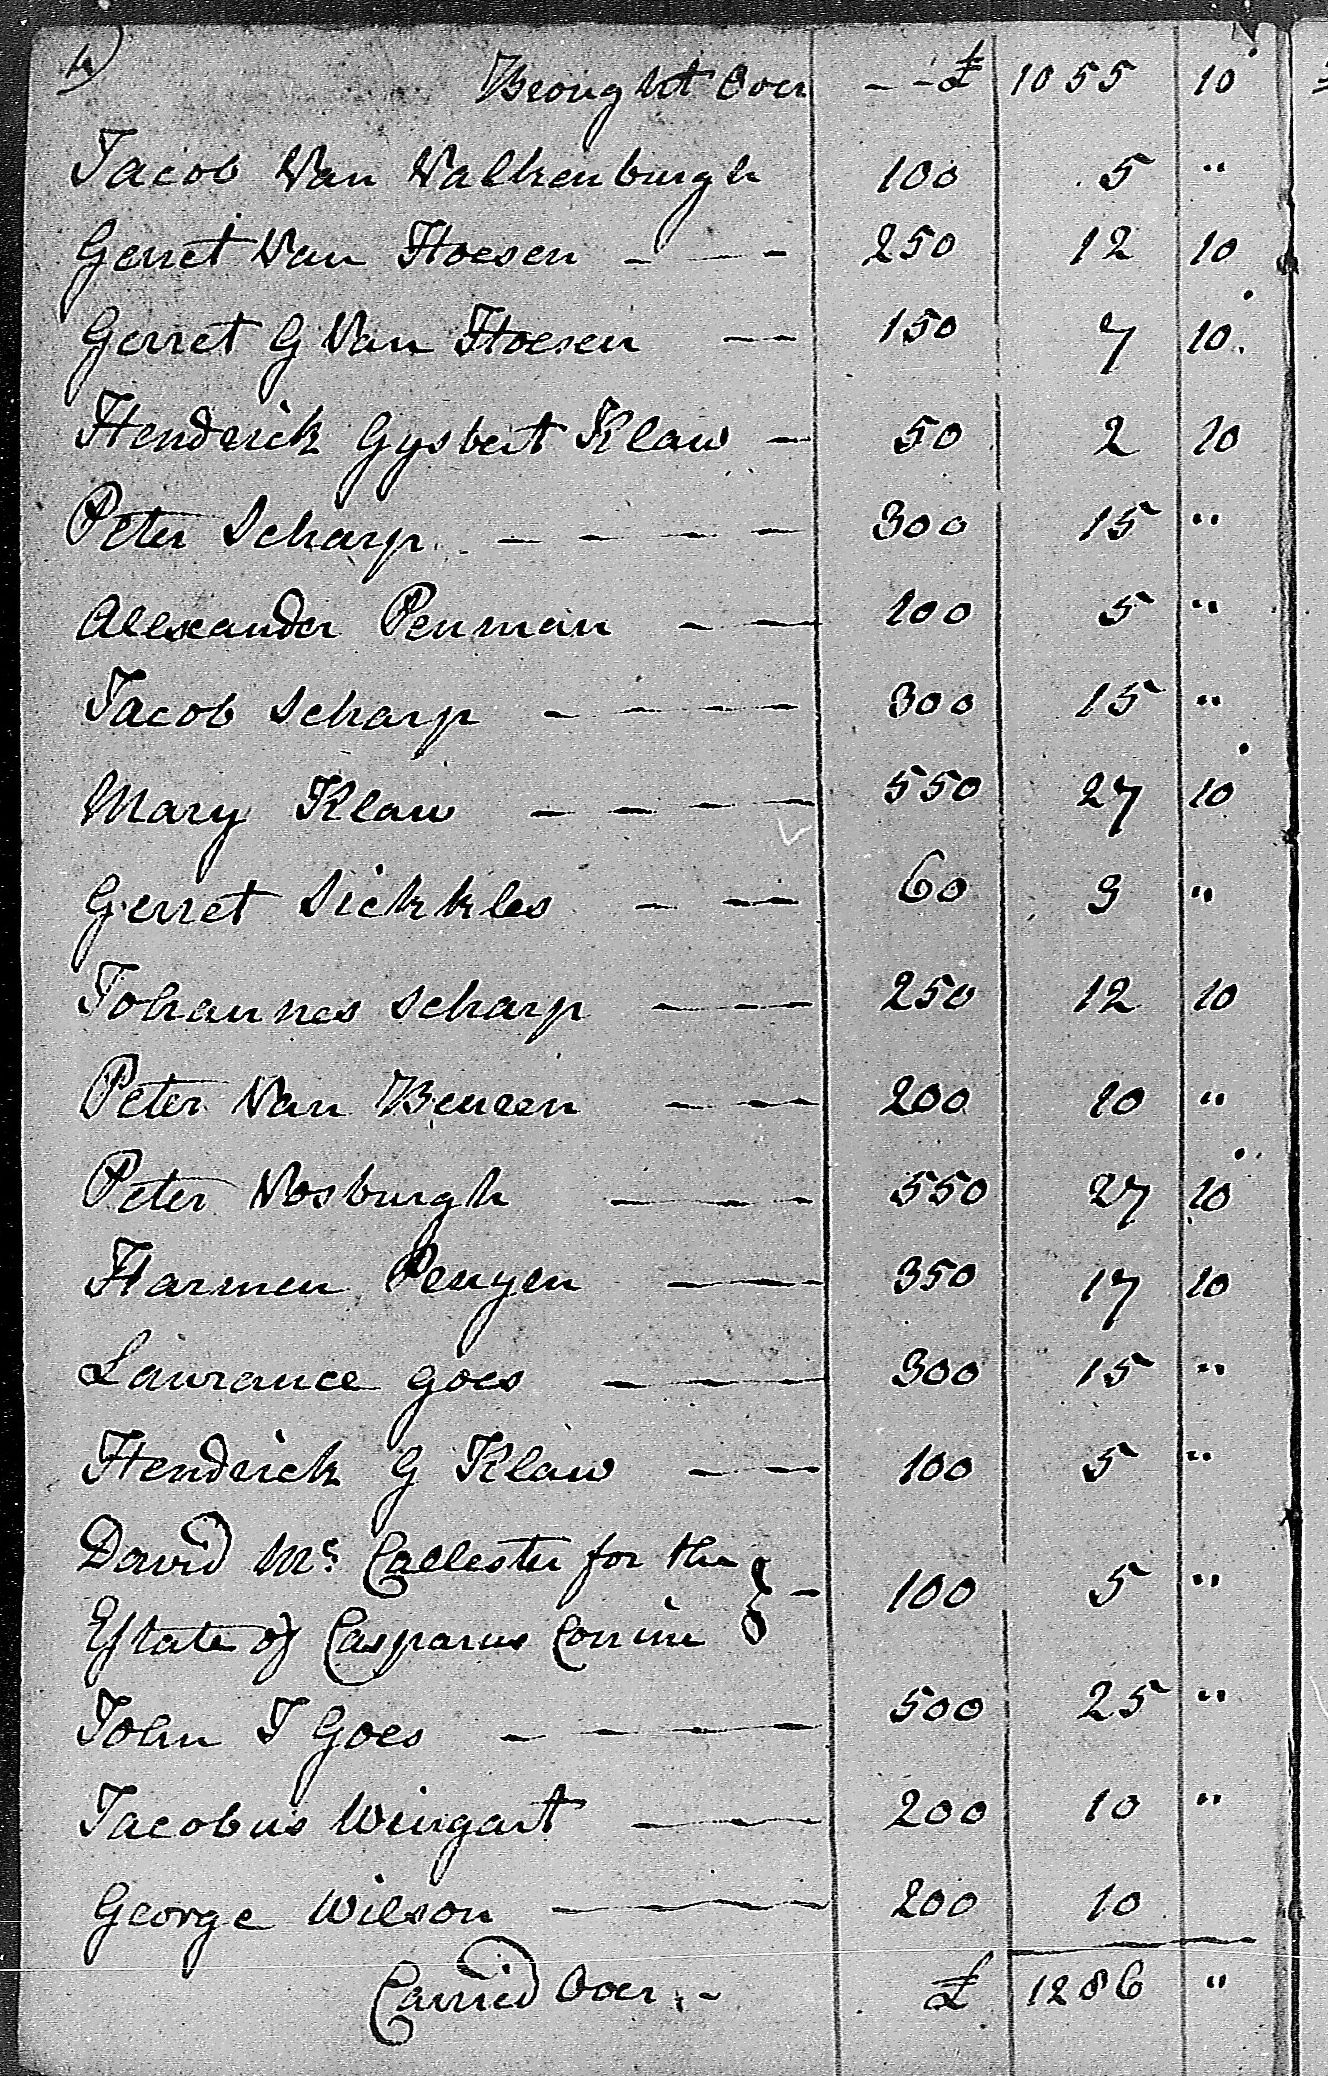 4)
Brought Over - - £ 1055 10
Jacob Van Valkenburgh 100 5 "
Gerret Van Hoesen - - - 250 12 10
Gerret G Van Hoesen - - 150 7 10
Hendrick Gysbert Klaw - 50 2 10
Peter Scharp - - - - 300 15 "
Alexander Penman - - 100 5 "
Jacob Scharp - - - - 300 15 "
Mary Klaw - - - - 550 27 10
Gerret Sickkles - - - 60 3 "
Johannes Scharp - - - 250 12 10
Peter Van Beuren - - - 200 10 "
Peter Vosburgh - - - 550 27 10
Harmen Pruyen - - - 350 17 10
Lawrance Goes - - - 300 15 "
Hendrick G Klaw - - 100 5 "
David Mc Callester for the
Estate of Casparus Conine } - 100 5 "
John J Goes - - - - 500 25 "
Jacobus Wingart - - - 200 10 "
George Wilson - - - 200 10
Carried Over - £ 1286 "